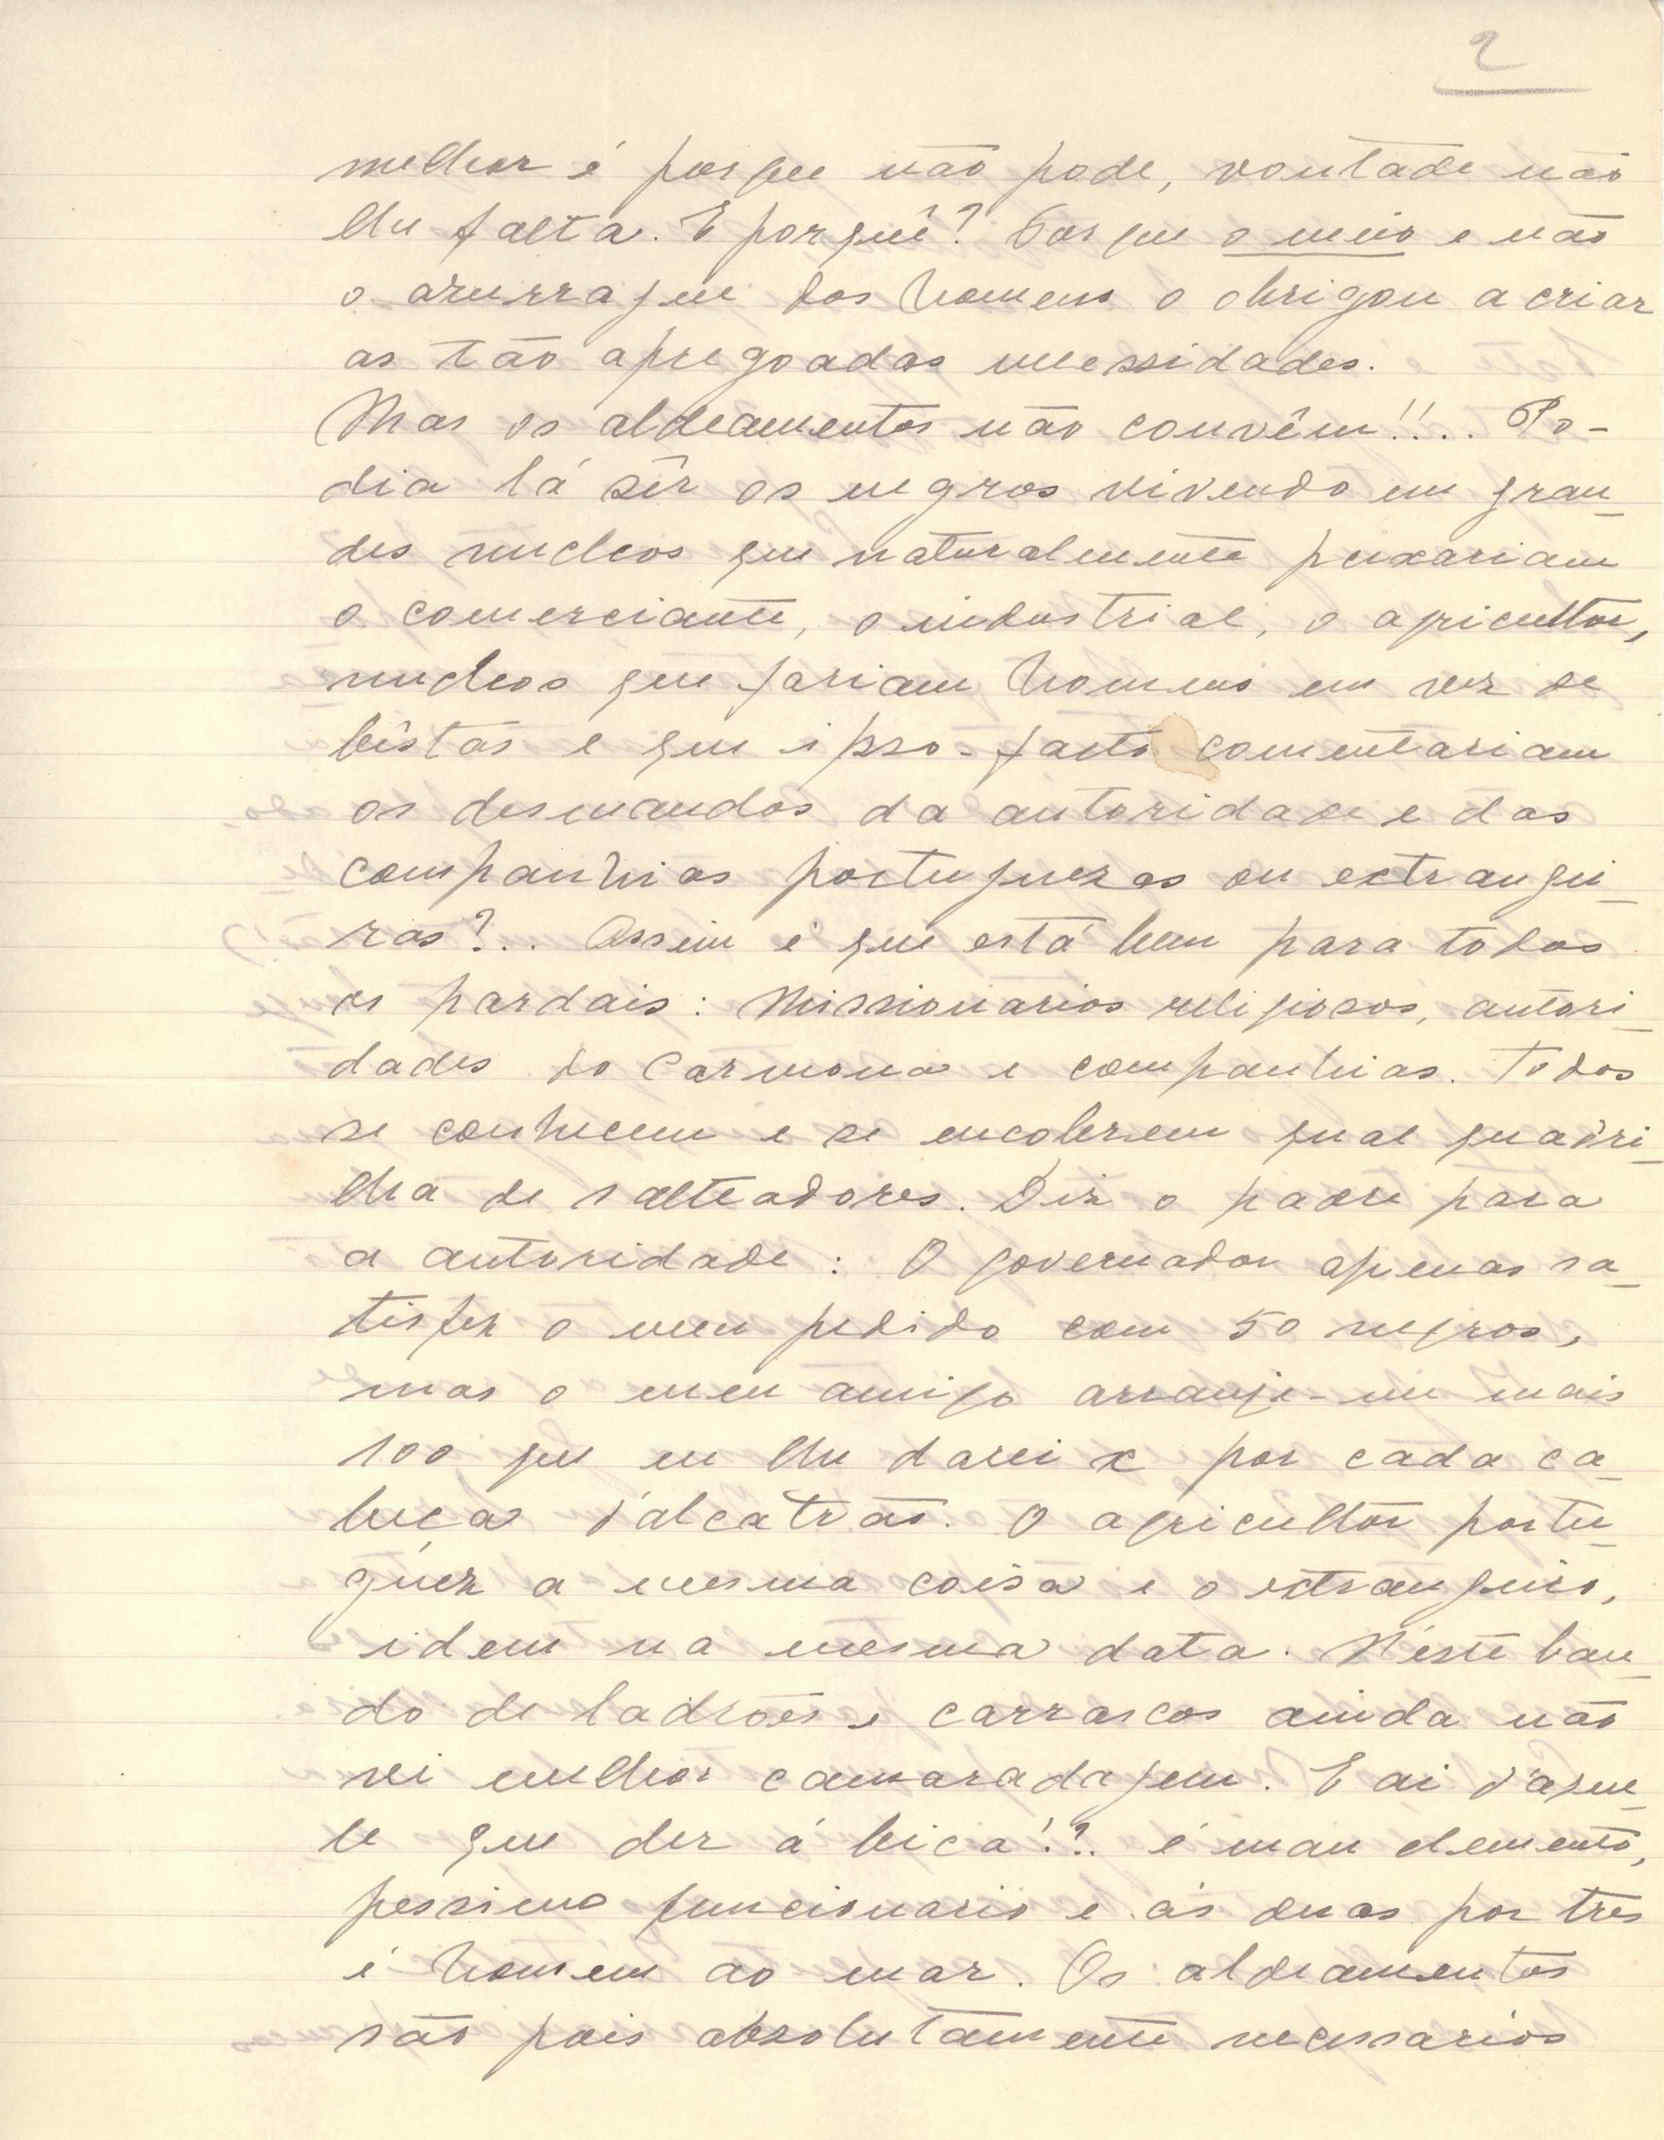 2
melhor é porque não pode, vontade não
lhe falta. E porquê? Porque o meio e não
o azurrague dos homens o obrigou a criar
as tão apregoadas necessidades.
Mas os aldeamentos não convêm!!.. Po-
dia lá sêr os negros vivendo em gran-
des nucleos que naturalmente puxariam
o comerciante, o industrial, o agricultor,
nucleos que fariam homens em vez de
bêstas e que ipso-facto comentariam
os desmandos da autoridade e das
companhias portuguezas ou extrangei-
ras?.. Assim é que está bem para todos
os pardais: Missionarios religiosos, autori-
dades do Carmona e companhias. Todos
se conhecem e se encobrem qual quadri-
lha de salteadores. Diz o padre para
a autoridade: O governador apenas sa-
tisfez o meu pedido com 50 negros,
mas o meu amigo arranje-me mais
100 que eu lhe darei x por cada ca-
beça d'alcatrão. O agricultor portu-
guez a mesma coisa e o extrangeiro,
idem na mesma data. N'este ban-
do de ladrões e carrascos ainda não
vi melhor camaradagem. E ai d'aque-
le que der á bica!?. é mau elemento,
pessimo funcionario e ás duas por tres
é homem ao mar. Os aldeamentos
são pois absolutamente necessarios